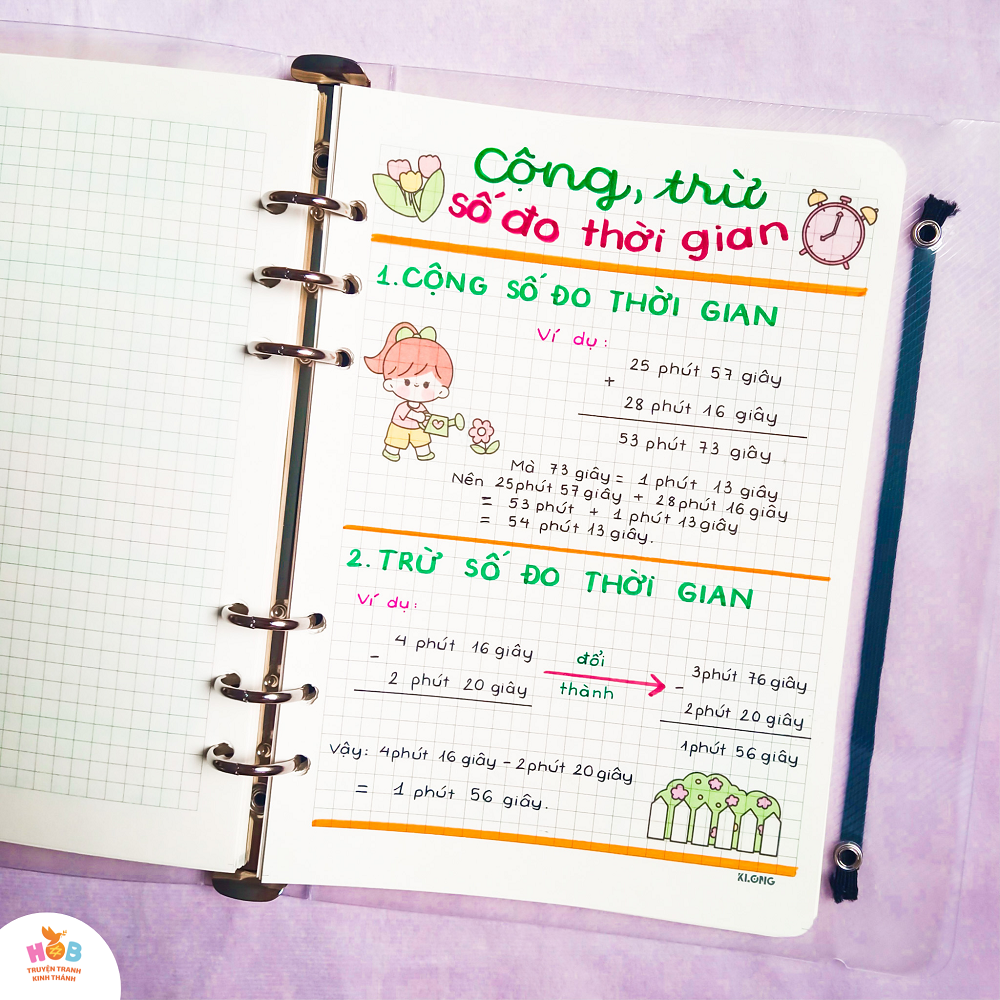 Cộng, trừ
số đo thời gian
1. CỘNG SỐ ĐO THỜI GIAN
Ví dụ:
25 phút 57 giây
+
28 phút 16 giây
53 phút 73 giây
Mà 73 giây = 1 phút 13 giây
Nên 25 phút 57 giây + 28 phút 16 giây
= 53 phút + 1 phút 13 giây
= 54 phút 13 giây.
2. TRỪ SỐ ĐO THỜI GIAN
Ví dụ:
4 phút 16 giây
-
2 phút 20 giây
đổi
thành
3 phút 76 giây
-
2 phút 20 giây
1 phút 56 giây
Vậy: 4 phút 16 giây - 2 phút 20 giây
= 1 phút 56 giây.
KLONG
HOB
TRUYỆN TRANH
KINH THÁNH